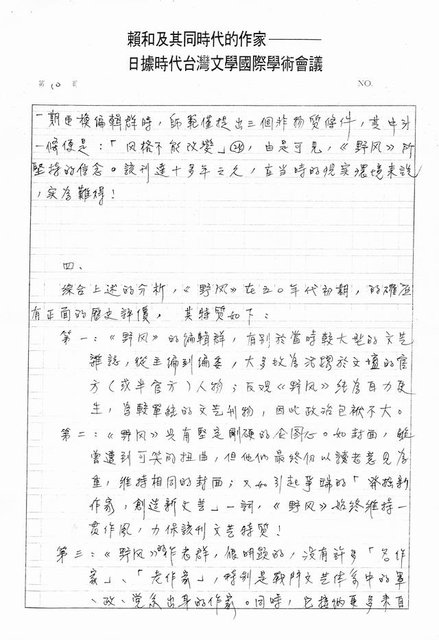 賴和及其同時代的作家————
日據時代台灣文學國際學術會議
第 10 頁
NO.
一期更換編輯群時，師範僅提出三個非物質條件，其中第
一條便是：「風格不能改變」㉘，由是可見，《野風》所
堅持的信念。該刊達十多年之久，在當時的現實環境來說
，實為難得！
四、
綜合上述的分析，《野風》在五〇年代初期，的確應
有正面的歷史評價，其特質如下：
第一：《野風》的編輯群，有別於當時較大型的文藝
雜誌，從主編到編委，大多均為活躍於文壇的官
方（或半官方）人物；反觀《野風》純為自力更
生，為較單純的文藝刊物，因此政治色彩不大。
第二：《野風》具有堅定剛硬的企圖心。如封面，雖
曾遭到可笑的扭曲，但他們最終仍以讀者意見為
重，維持相同的封面；又如引起爭睹的「發掘新
作家，創造新文藝」一詞，《野風》始終維持一
貫作風，力保該刊文藝特質！
第三：《野風》的作者群，很明顯的，沒有許多「名作
家」、「老作家」，特別是戰鬥文藝體系中的軍
、政、黨系出身的作家。同時，它提供更多來自